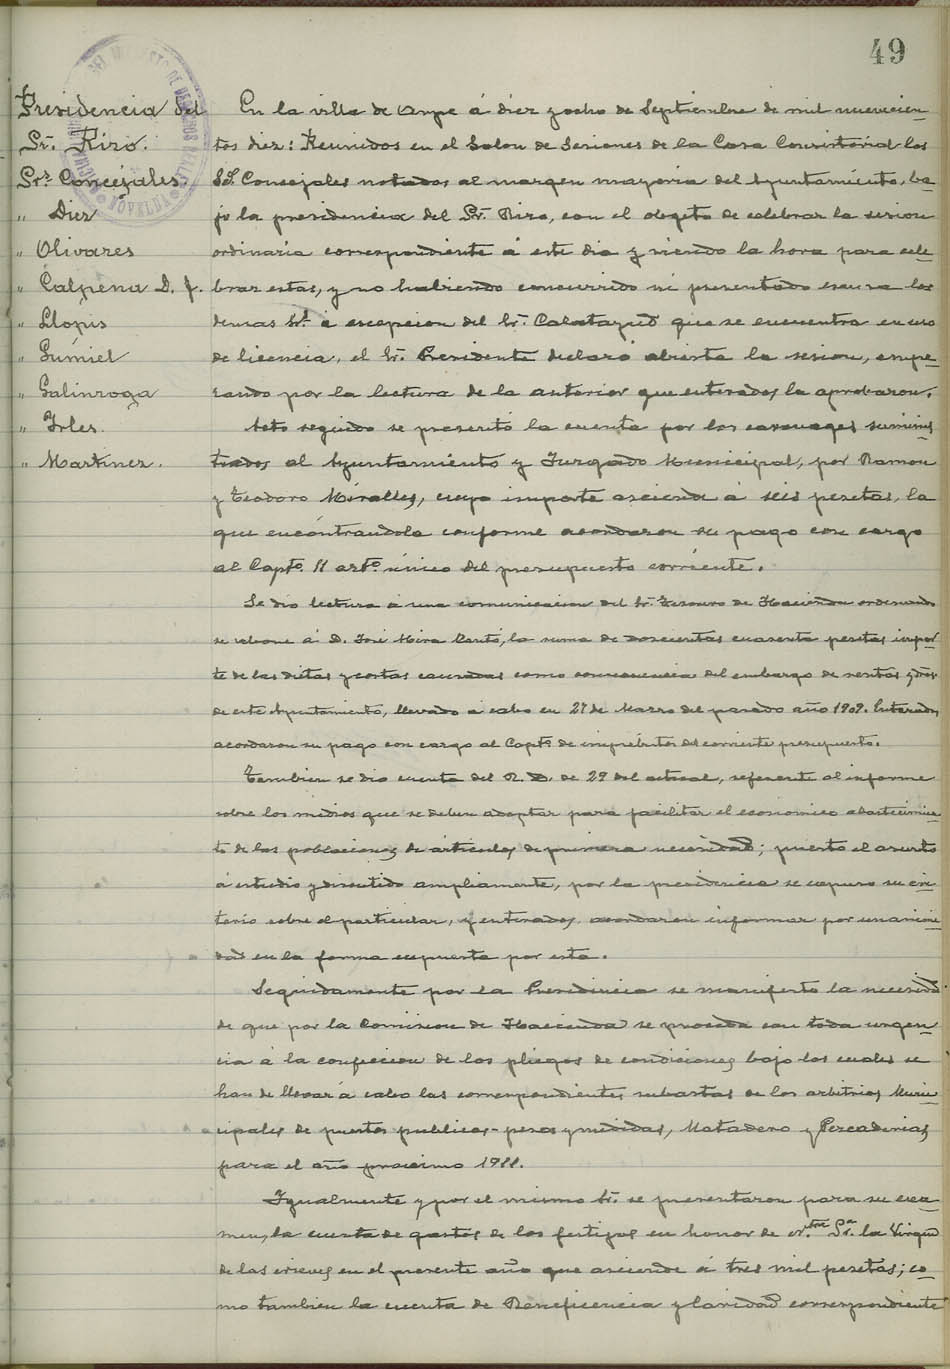 49
Presidencia del
Sr. Rizo.
Srs. Concejales.
" Diez
" Olivares
" Calpena D. J.
" Llopis
" Gumiel
" Galinsoga
" Irles.
" Martinez.
En la villa de Aspe á diez y ocho de Septiembre de mil nuevecien-
tos diez: Reunidos en el Salon de Sesiones de la Casa Consistorial los
SS. Concejales notados al margen mayoria del Ayuntamiento, ba-
jo la presidencia del Sr. Rizo, con el obgeto de celebrar la sesion
ordinaria correspondiente á este dia y siendo la hora para cele-
brar estas, y no habiendo concurrido ni presentado escusa los
demas Srs. á escepcion del Sr. Calatayud que se encuentra en uso
de licencia, el Sr. Presidente declaró abierta la sesion, empe-
zando por la lectura de la anterior que enterados la aprobaron.
Acto seguido se presentó la cuenta por los carruages suminis-
trados al Ayuntamiento y Juzgado Municipal, por Ramon
y Teodoro Miralles, cuyo importe asciende á seis pesetas, la
que encontrandola conforme acordaron su pago con cargo
al Capto. 11 arto. único del presupuesto corriente.
Se dio lectura á una comunicacion del Sr. Tesorero de Hacienda ordenando
se abone á D. José Mira Cantó, la suma de doscientas cuarenta pesetas impor-
te de las dietas y costas causadas como consecuencia del embargo de rentas y dros.
de este Ayuntamiento, llevado á cabo en 27 de Marzo del pasado año 1909. Enterados
acordaron su pago con cargo al Capto. de imprebistos del corriente presupuesto.
Tambien se dio cuenta del R. D. de 29 del actual, referente al informe
sobre los medios que se deben adoptar para facilitar el economico abastecimien-
to de las poblaciones de articulos de primera necesidad; puesto el asunto
á estudio y discutido ampliamente, por la presidencia se expuso su cri-
terio sobre el particular, y enterados acordaron informar por unanimi-
dad en la forma expuesta por esta.
Seguidamente por la Presidencia se manifesto la necesidad
de que por la Comision de Hacienda se proceda con toda urgen-
cia á la confeccion de los pliegos de condiciones bajo los cuales se
han de llevar á cabo las correspondientes subastas de los arbitrios Muni-
cipales de puestos publicos-pesas y medidas, Matadero y Pescaderias,
para el año proximo 1911.
Igualmente y por el mismo Sr. se presentaron para su exa-
men, la cuenta de gastos de los festejos en honor de Ntra. Sra. la Virgen
de las Nieves en el presente año que asciende á tres mil pesetas; co-
mo tambien la cuenta de Beneficencia y Caridad correspondiente